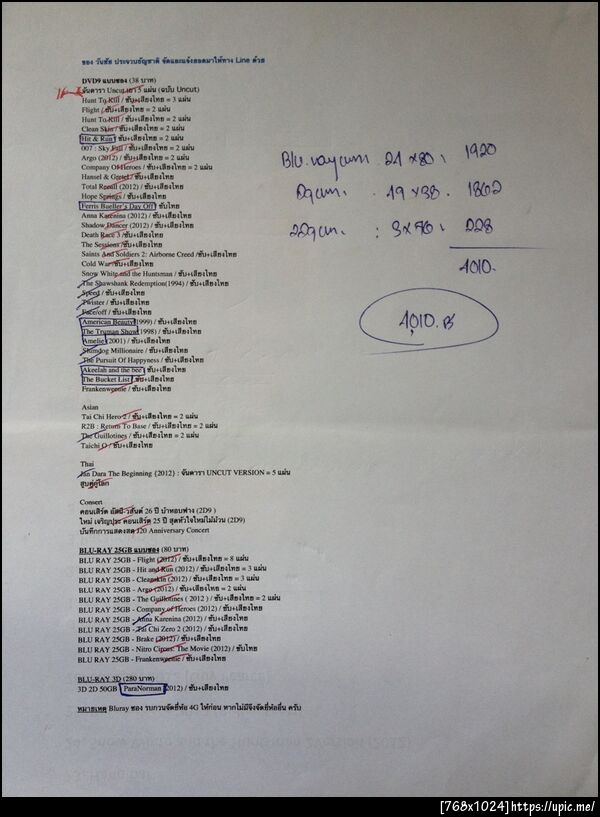 ของ วันชัย ประจวบธัญชาติ จัดและแจ้งยอดมาให้ทาง Line ด้วย
DVD9 แบบซอง (38 บาท)
จันดารา Uncut เอา 5 แผ่น (ฉบับ Uncut)
Hunt To Kill / ซับ+เสียงไทย = 3 แผ่น
Flight / ซับ+เสียงไทย = 2 แผ่น
Hunt To Kill / ซับ+เสียงไทย = 2 แผ่น
Clean Skin / ซับ+เสียงไทย = 2 แผ่น
Hit & Run / ซับ+เสียงไทย = 2 แผ่น
007 : Sky Fall / ซับ+เสียงไทย = 2 แผ่น
Argo (2012) / ซับ+เสียงไทย = 2 แผ่น
Company Of Heroes / ซับ+เสียงไทย = 2 แผ่น
Hansel & Gretel / ซับ+เสียงไทย
Total Recall (2012) / ซับ+เสียงไทย
Hope Springs / ซับ+เสียงไทย
Ferris Bueller's Day Off / ซับไทย
Anna Karenina (2012) / ซับ+เสียงไทย
Shadow Dancer (2012) / ซับ+เสียงไทย
Death Race 3 / ซับ+เสียงไทย
The Sessions / ซับ+เสียงไทย
Saints And Soldiers 2: Airborne Creed / ซับ+เสียงไทย
Cold War / ซับ+เสียงไทย
Snow White and the Huntsman / ซับ+เสียงไทย
The Shawshank Redemption(1994) / ซับ+เสียงไทย
Speed / ซับ+เสียงไทย
Twister / ซับ+เสียงไทย
Face/off / ซับ+เสียงไทย
American Beauty (1999) / ซับ+เสียงไทย
The Truman Show (1998) / ซับ+เสียงไทย
Amelie (2001) / ซับ+เสียงไทย
Slumdog Millionaire / ซับ+เสียงไทย
The Pursuit Of Happyness / ซับ+เสียงไทย
Akeelah and the bee / ซับ+เสียงไทย
The Bucket List / ซับ+เสียงไทย
Frankenweenie / ซับ+เสียงไทย
Asian
Tai Chi Hero 2 / ซับ+เสียงไทย = 2 แผ่น
R2B : Return To Base / ซับ+เสียงไทย = 2 แผ่น
The Guillotines / ซับ+เสียงไทย = 2 แผ่น
Taichi O / ซับ+เสียงไทย
Thai
Jan Dara The Beginning {2012} : จันดารา UNCUT VERSION = 5 แผ่น
สูบคู่กู้โลก
Consert
คอนเสิร์ต อัสนี-วสันต์ 26 ปี บ้าหอบฟาง (2D9 )
ใหม่ เจริญปุระ คอนเสิร์ต 25 ปี สุดหัวใจใหม่ไม่ม้วน (2D9)
บันทึกการแสดงสด J20 Anniversary Concert
BLU-RAY 25GB แบบซอง (80 บาท)
BLU RAY 25GB - Flight (2012) / ซับ+เสียงไทย = 8 แผ่น
BLU RAY 25GB - Hit and Run (2012) / ซับ+เสียงไทย = 3 แผ่น
BLU RAY 25GB - Cleanskin (2012) / ซับ+เสียงไทย = 3 แผ่น
BLU RAY 25GB - Argo (2012) / ซับ+เสียงไทย = 2 แผ่น
BLU RAY 25GB - The Guillotines ( 2012 ) / ซับ+เสียงไทย = 2 แผ่น
BLU RAY 25GB - Company of Heroes (2012) / ซับ+เสียงไทย
BLU RAY 25GB - Anna Karenina (2012) / ซับ+เสียงไทย
BLU RAY 25GB - Tai Chi Zero 2 (2012) / ซับ+เสียงไทย
BLU RAY 25GB - Brake (2012) / ซับ+เสียงไทย
BLU RAY 25GB - Nitro Circus: The Movie (2012) / ซับไทย
BLU RAY 25GB - Frankenweenie / ซับ+เสียงไทย
BLU-RAY 3D (280 บาท)
3D 2D 50GB ParaNorman (2012) / ซับ+เสียงไทย
หมายเหตุ Bluray ซอง รบกวนจัดยี่ห้อ 4G ให้ก่อน หากไม่มีจึงจัดยี่ห้ออื่น ครับ
24 x 80 : 1920
49 x 38 . 1862
: 3 x 76 : 228
4010.
4,010.B
[768x1024] https://upic.me/